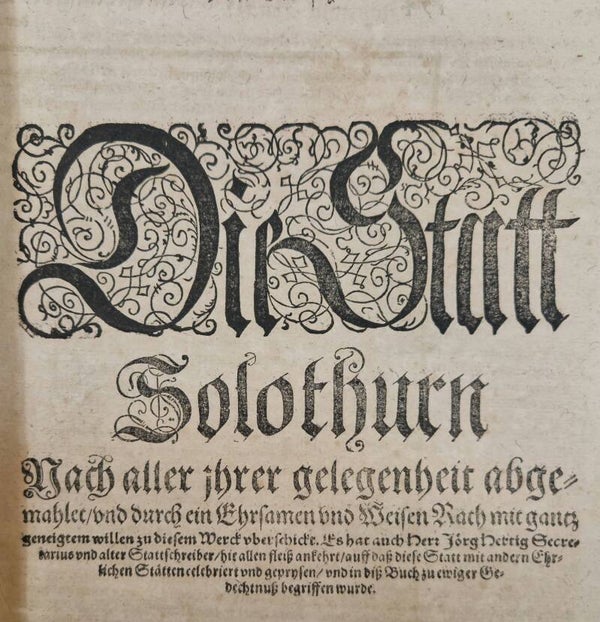 Die Statt
Solothurn
Nach aller jhrer gelegenheit abge-
mahlet/vnd durch ein Ehrsamen vnd Weisen Rach mit gantz
geneigtem willen zu diesem Werck vberschickt. Es hat auch Herr Jörg Hertig Secre-
tarius vnd alter Stattschreiber/hit allen fleiß ankehrt/auff daß diese Statt mit andern Ehr-
lichen Stätten celebriert vnd geprysen/vnd in diß Buch zu ewiger Ge-
dechtnuß begriffen wurde.